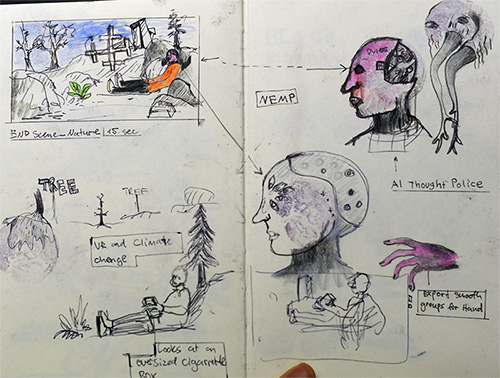 END Scene_Nature | 15 sec
TREE
TREE
VR and Climate
change
Looks at an
oversized Cigarrette
Box
NEMP
AI Thought Police
Export Smooth
groups for Hand